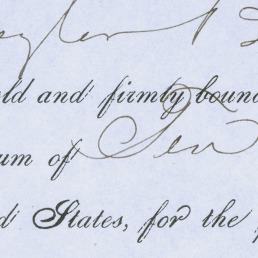 ld and firmly boun
um of Ten
d States, for the